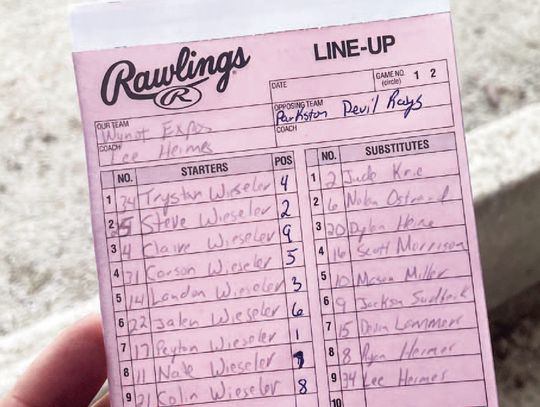 Rawlings
R
LINE-UP
DATE
GAME NO. 1 2
(circle)
OUR TEAM
Wynot Expos
OPPOSING TEAM
Parkston Devil Rays
COACH
Lee Heimes
COACH
NO. STARTERS POS
1 34 Trystan Wieseler 4
2 25 Steve Wieseler 2
3 4 Claire Wieseler 9
4 31 Carson Wieseler 5
5 14 Landon Wieseler 3
6 22 Jalen Wieseler 6
7 17 Peyton Wieseler 1
8 11 Nate Wieseler 7
9 21 Colin Wieseler 8
NO. SUBSTITUTES
1 2 Jude Krie
2 6 Nolan
3 20 Dylan Heine
4 16 Scott Morrison
5 10 Mason Miller
6 9 Jackson
7 15 Devin Lammers
8 8 Ryan Heimes
9 34 Lee Heimes
10